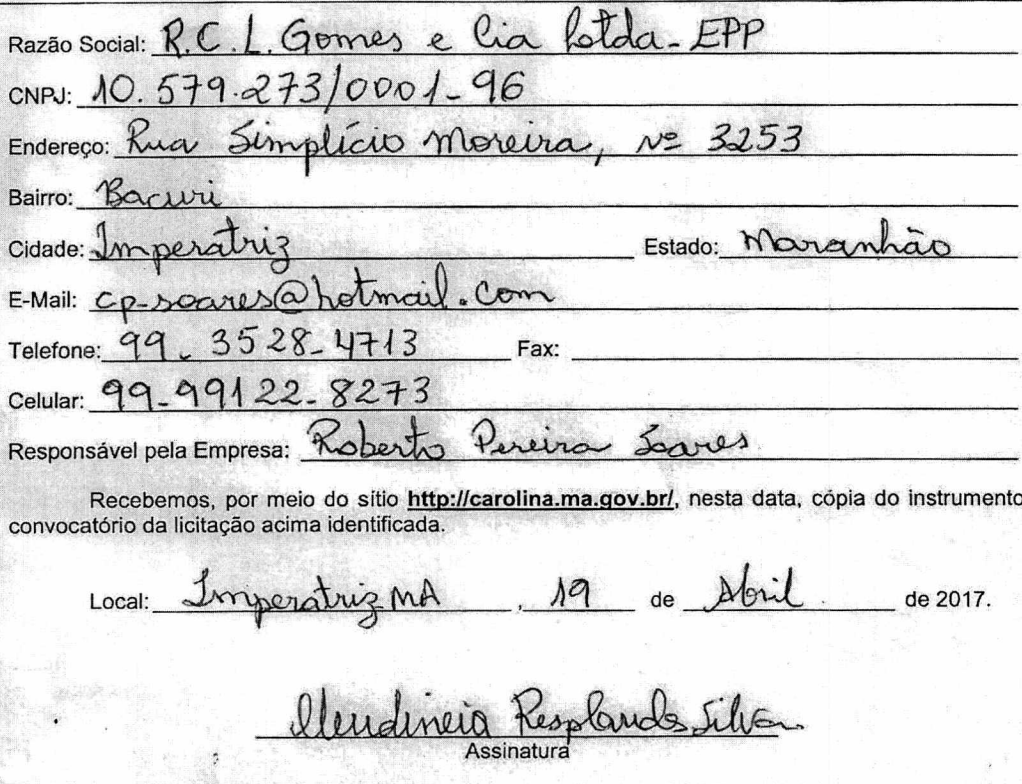 Razão Social: R.C.L. Gomes e Cia Ltda - EPP
CNPJ: 10.579.273/0001-96
Endereço: Rua Simplício Moreira, Nº 3253
Bairro: Bacuri
Cidade: Imperatriz Estado: Maranhão
E-Mail: cp-soares@hotmail.com
Telefone: 99. 3528-4713 Fax:
Celular: 99-99122-8273
Responsável pela Empresa: Roberto Pereira Soares
Recebemos, por meio do sítio http://carolina.ma.gov.br/, nesta data, cópia do instrumento
convocatório da licitação acima identificada.
Local: Imperatriz MA , 19 de Abril de 2017.
Resplandes Silva
Assinatura